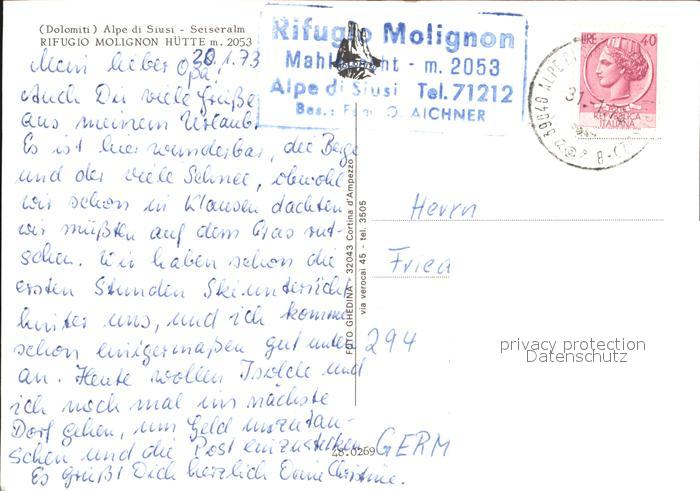 (Dolomiti) Alpe di Siusi - Seiseralm
RIFUGIO MOLIGNON HÜTTE m. 2053
20.1.73
Mein lieber Opa!
Auch Dir viele Grüße
aus meinem Urlaub.
Es ist hier wunderbar, die Berge
und der viele Schnee, obwohl
wir schon in Klausen dachten,
wir müßten auf dem Gras rut-
schen. Wir haben schon die
ersten Stunden Skiunterricht
hinter uns, und ich komme
schon einigermaßen gut unten
an. Heute wollen Isolde und
ich noch mal ins nächste
Dorf gehen, um Geld umzutau-
schen und die Post einzustecken.
Es grüßt Dich herzlich Deine Christine.
Rifugio Molignon
Mahlknecht - m. 2053
Alpe di Siusi Tel. 71212
Bes.: Fam. O. AICHNER
LIRE 40
REPVBBLICA
ITALIANA
39040 ALPE DI
FOTO GHEDINA - 32043 Cortina d'Ampezzo
via verocai 45 - tel. 3505
Herrn
Fried
294
GERM
48.0269
privacy protection
Datenschutz